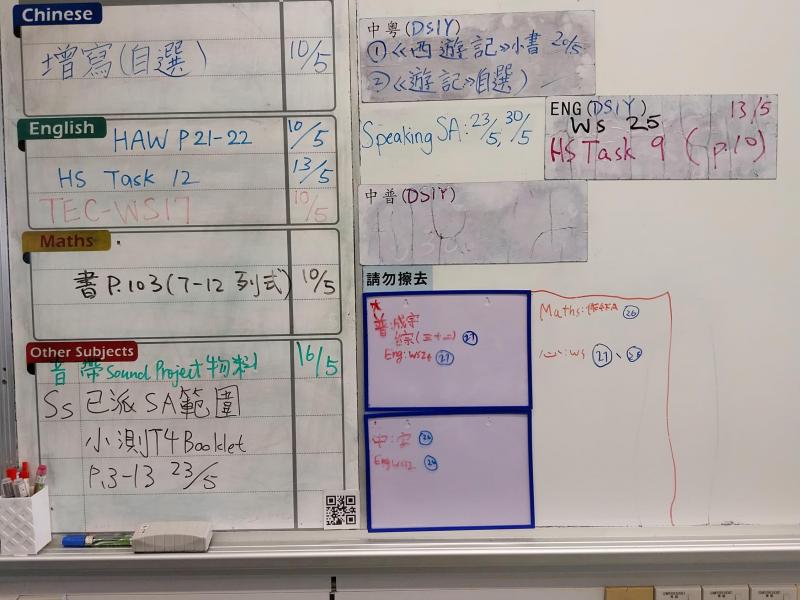 Chinese
增寫(自選) 10/5
English
HAW P21-22 10/5
HS Task 12 13/5
TEC-WS17 10/5
Maths
書P.103(7-12 列式) 10/5
Other Subjects
音 帶Sound Project物料 16/5
Ss 已派SA範圍
小測T4 Booklet
P.3-13 23/5
中粵(DSIY)
①《西遊記》小書 20/5
②《遊記》自選)
Speaking SA: 23/5, 30/5
ENG(DSIY) 13/5
WS 25
HS Task 9 (p.10)
中普(DSIY)
請勿擦去
普:成字
綜(三十二) 27
Eng: WS24 27
中: 26
Eng WS12 26
Maths: 26
心: WS 27、